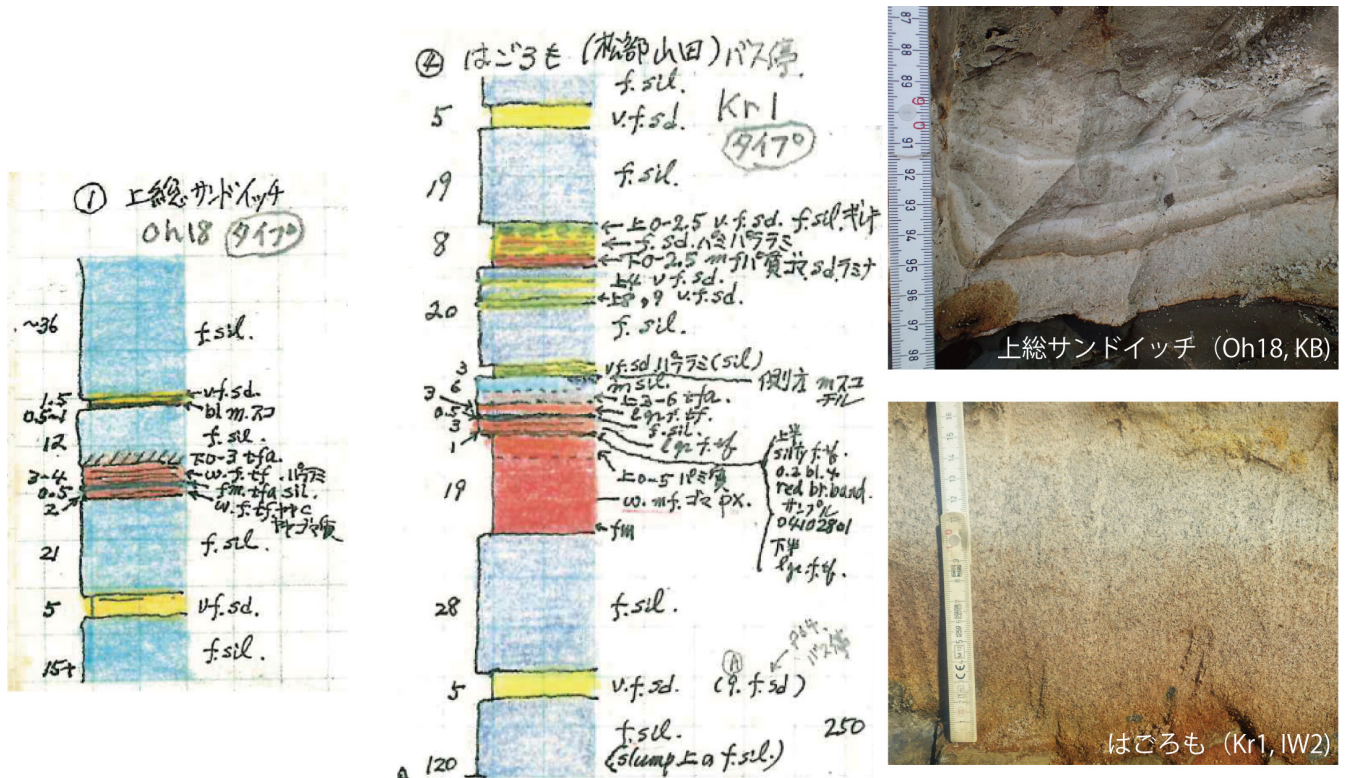 ① 上総サンドイッチ
Oh18 タイプ
~36
f.sil.
1.5
v.f.sd.
0.5-1
bl m.スコ
12
f.sil.
下0-3 tfa.
3-4
w.f.tf.パラミ
0.5
fm.tfa sil.
2
w.f.tf.ヤヤ
ヤヤゴマ質
21
f.sil.
5
v.f.sd.
15+
f.sil.
④ はごろも (松部山田) バス停
Kr1
タイプ
f.sil.
5
v.f.sd.
19
f.sil.
8
上0-2.5 v.f.sd. f.sil.
f.sd.パミパララミ
下0-2.5 mfパ質ゴマsd.ラミナ
20
上4 v.f.sd.
上8,9 v.f.sd.
f.sil.
3
v.f.sd パララミ(sil)
6
m sil.
側方 mスコ
チル
3
上3-6 tfa.
0.5
lgr.f.tf.
3
f.sil.
1
lgr.f.tf
19
上0-5 パミ質
w.mf.ゴマ px.
fm
上半
silty f.tf.
0.2 bl.4
red br.band.
サンプル
04102801
下半
lgr.f.tf.
28
f.sil.
5
v.f.sd. (g.f.sd)
バス停
120
f.sil.
(slump上のf.sil.)
250
87
88
89
90
91
92
93
94
95
96
97
98
上総サンドイッチ（Oh18, KB）
はごろも（Kr1, IW2）